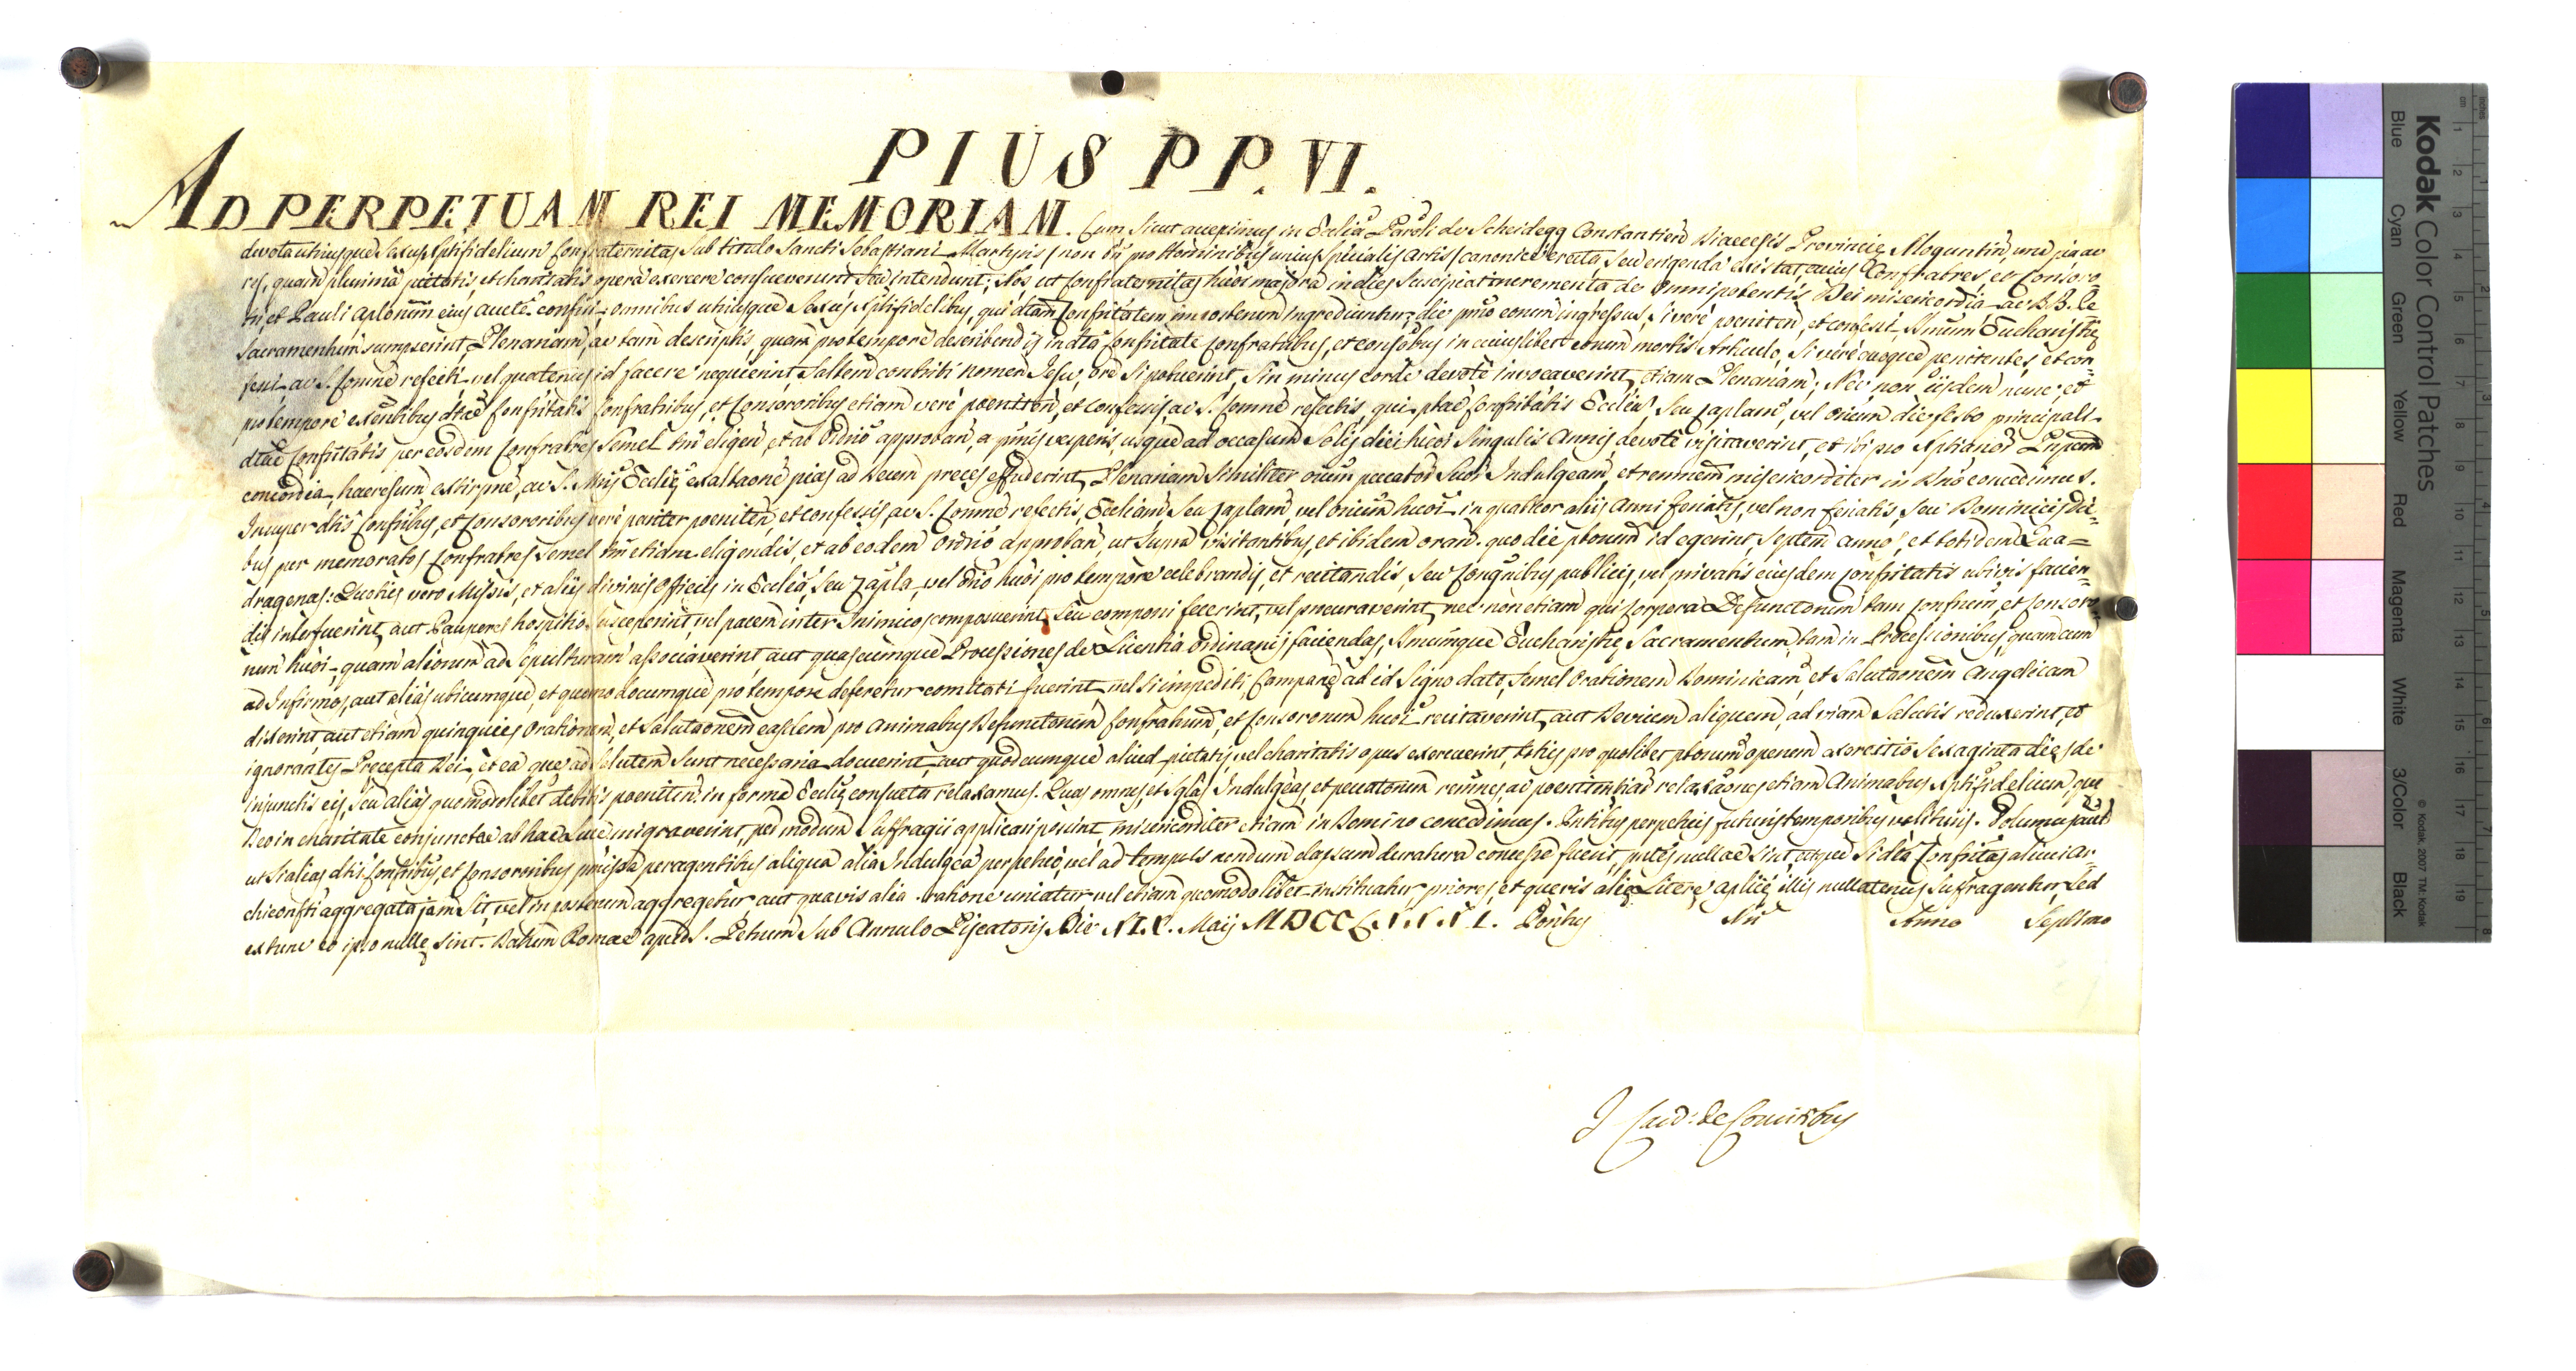 PIUS PP. VI.
AD PERPETUAM REI MEMORIAM. Cum sicut accepimus in Ecclia Paroli de Scheidegg Constantien Diaecesis Provinciae Moguntin, una pia ac
devota utriusque sexus Xptifidelium Confraternitas sub titulo Sancti Sebastiani Martyris / non tn pro Hominibus unius spicialis artis / canonice erecta, seu erigenda existat, cuius Confratres, et Consoro-
res, quam plurima pietatis, et charitatis opera exercere consueverunt seu intendunt; Nos ut Confraternitas huoi majora in dies suscipiat incrementa de Omnipotentis Dei misericordia ac B.B. Pe
tri, et Pauli Aplorum eius aucte confisi omnibus utriusque sexus Xptifidelibus, qui dtam Confritatem in posterum ingredientur, die primo eorum ingressus, si vere poeniten, et confessi Smum Eucharistiae
Sacramentum sumpserint Plenariam, ac tam descriptis, quam pro tempore describendis in dta Confritate Confratribus, et Consobus in cuiuslibet eorum mortis Articulo, si vere quoque penitentes, et con-
fessi ac S. Comne refecti vel quatenus id facere nequierint, saltem contriti nomen Jesu, ore si potuerint, sin minus corde devote invocaverint, etiam Plenariam; Nec non iisdem nunc, et
pro tempore exentibus dtae Confritatis Confratribus, et Consororibus etiam vere poeniten, et confessis, ac S. Comne refectis, qui ptae Confritatis Eccliam seu Caplam, vel Orium die festo principali
dtae Confritatis per eosdem Confratres semel tm eligen, et ab Ordrio approban, a primis vesperis, usque ad occasum Solis diei huoi singulis Annis devote visitaverint, et ibi pro Xptianor Pnpum
concordia, haeresum extirpne, ac S. Mris Eccliae exaltaone pias ad Deum preces effuderint, Plenariam similiter oium peccator suor Indulgeam, et remnem misericorditer in Dno concedimus.
Insuper dtis Confribus, et Consororibus vere pariter poeniten, et confessis, ac S. Comne refectis, Eccliam seu Caplam, vel Orium huoi in quatuor aliis Anni feriatis, vel non feriatis, seu Dominicis die-
bus per memoratos Confratres semel tm etiam eligendis, et ab eodem Ordrio approban, ut supra visitantibus, et ibidem oran. quo die ptorum id egerint, Septem annos, et totidem Qua-
dragenas: Quoties vero Missis, et aliis divinis Officiis in Ecclia, seu Capla, vel Orio huoi pro tempore celebrandis, et recitandis, seu Congnibus publicis, vel privatis eiusdem Confritatis ubivis facien-
dis interfuerint, aut Pauperes hospitio susceperint, vel pacem inter Inimicos composuerint, seu componi fecerint, vel procuraverint, nec non etiam qui Corpora Defunctorum tam Confrum, et Consoro-
rum huoi, quam aliorum ad Sepulturam associaverint aut quascumque Processiones de Licentia Ordinarii faciendas, Smumque Eucharistiae Sacramentum, tam in Processionibus, quam cum
ad Infirmos, aut alias ubicumque, et quomodocumque pro tempore deferetur comitati fuerint, vel si impediti, Campanae ad id signo dato, semel Orationem Dominicam, et Salutaonem Angelicam
dixerint, aut etiam quinquies Orationem, et Salutaonem easdem pro Animabus Defunctorum Confratrum, et Consororum huoi recitaverint, aut Devium aliquem, ad viam salutis reduxerint, et
ignorantes Praecepta Dei, et ea quae ad salutem sunt necessaria docuerint, aut quodcumque aliud pietatis, vel charitatis opus exercuerint, toties pro quolibet ptorum operum exercitio sexaginta dies de
injunctis eis, seu alias quomodolibet debitis poeniten. in forma Eccliae consueta relaxamus. Quas omnes, et sglas Indulgeas, et peccatorum remnes, ac poenitentiar relaxaones etiam Animabus Xptifidelium, quae
Deo in charitate conjunctae ab hac Luce migraverint, per modum suffragii applicari possint, misericorditer etiam in Domino concedimus. Pntibus perpetuis futuris temporibus valituris. Volumus aut
ut si alias dtis Confribus, et Consororibus pmissa peragentibus aliqua alia Indulgea perpetuo, vel ad tempus nondum elapsum duratura concessa fuerit, pntes nullae sint, atque si dta Confritas alicui Ar-
chiconfti aggregata jam sit, vel in posterum aggregetur aut quavis alia ratione uniatur, vel etiam quomodolibet instituatur, priores, et quevis aliae Literae aplicae illis nullatenus suffragentur, sed
ex tunc eo ipso nullae sint. Datum Romae apud S. Petrum sub Annulo Piscatoris Die XIX. Maij MDCCLXXXI. Pontus Nri Anno Septimo
I Card. de Comitibus
Kodak Color Control Patches
Blue Cyan Green Yellow Red Magenta White 3/Color Black
© Kodak, 2007 TM: Kodak
cm 1 2 3 4 5 6 7 8 9 10 11 12 13 14 15 16 17 18 19
inches 1 2 3 4 5 6 7 8